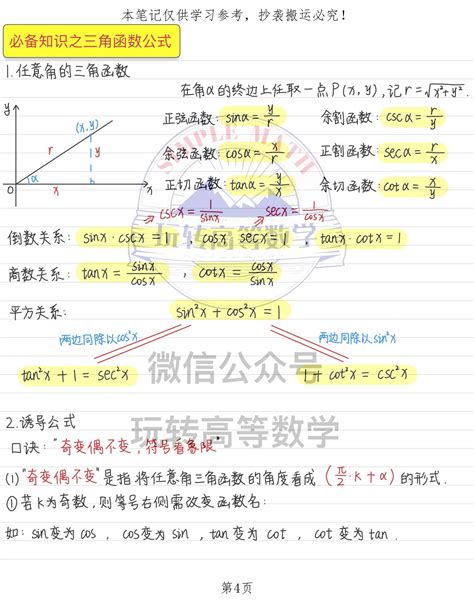 本笔记仅供学习参考，抄袭搬运必究！
必备知识之三角函数公式
1.任意角的三角函数
在角α的终边上任取一点P(x, y),记r=√x²+y².
y
(x,y)
r
y
α
O
x
x
正弦函数: sinα=y/r 余割函数: cscα=r/y
余弦函数: cosα=x/r 正割函数: secα=r/x
正切函数: tanα=y/x 余切函数: cotα=x/y
SIMPLE MATH
cscx=1/sinx secx=1/cosx
倒数关系: sinx·cscx=1 , cosx·secx=1, tanx·cotx=1
玩转高等数学
商数关系: tanx=sinx/cosx , cotx=cosx/sinx
平方关系: sin²x+cos²x=1
两边同除以cos²x 两边同除以sin²x
微信公众号
tan²x+1=sec²x 1+cot²x=csc²x
玩转高等数学
2.诱导公式
口诀:"奇变偶不变，符号看象限"
(1)"奇变偶不变"是指将任意角三角函数的角度看成(π/2·k+α)的形式.
①若k为奇数,则等号右侧需改变函数名:
如: sin变为cos, cos变为sin, tan变为cot, cot变为tan.
第4页